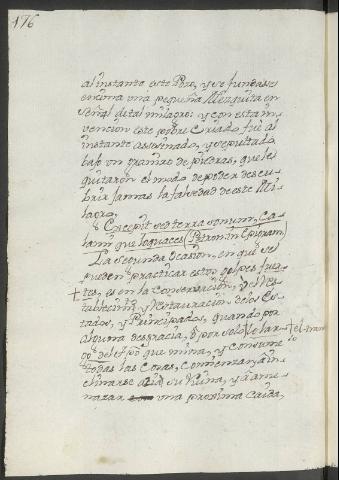 176
al instante este Pozo, y se fundasse
encima una pequeña Mezquita en
señal de tal milagro: y con esta in-
vención este pobre Criado fue al
instante assesinado, y sepultado
bajo un granizo de piedras, que le
quitaron el modo de poder descu-
brir jamas la falsedad de este Mi-
lagro.
Excepit sed terra sonum, Ca-
lami que loquaces (Petron. in Epigram.)
La segunda Ocasion, en que se
pueden practicar estos golpes fuer-
tes, es en la Conservacion, Res-
tablecim.to y Restauracion de los Es-
tados, y Principados, quando por
alguna desgracia, o por solo el lar-
go del tpõ que mina, y consume
todas las Cosas, comienzan, a in-
clinarse acia su Ruina, y a ame-
nazar una proxima caida,